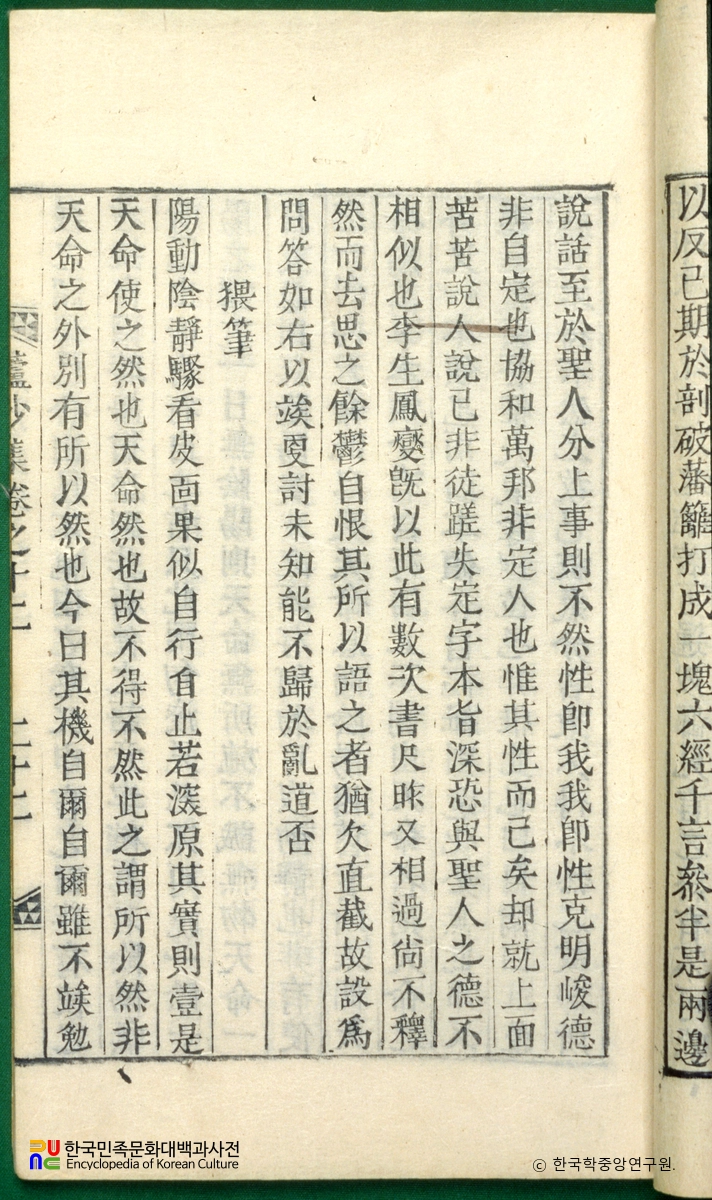 以反己期於剖破藩籬打成一塊六經千言叅半是兩邊
說話至於聖人分上事則不然性卽我我卽性克明峻德
非自定也協和萬邦非定人也惟其性而已矣却就上面
苦苦說人說己非徒蹉失定字本旨深恐與聖人之德不
相似也李生鳳燮旣以此有數次書尺昨又相過尙不釋
然而去思之餘鬱自恨其所以語之者猶欠直截故設爲
問答如右以竢更討未知能不歸於亂道否
猥筆
陽動陰靜驟看皮面果似自行自止若深原其實則壹是
天命使之然也天命然也故不得不然此之謂所以然非
天命之外別有所以然也今曰其機自爾自爾雖不竢勉
蘆沙集卷之十二 二十二
한국민족문화대백과사전
Encyclopedia of Korean Culture
ⓒ 한국학중앙연구원.